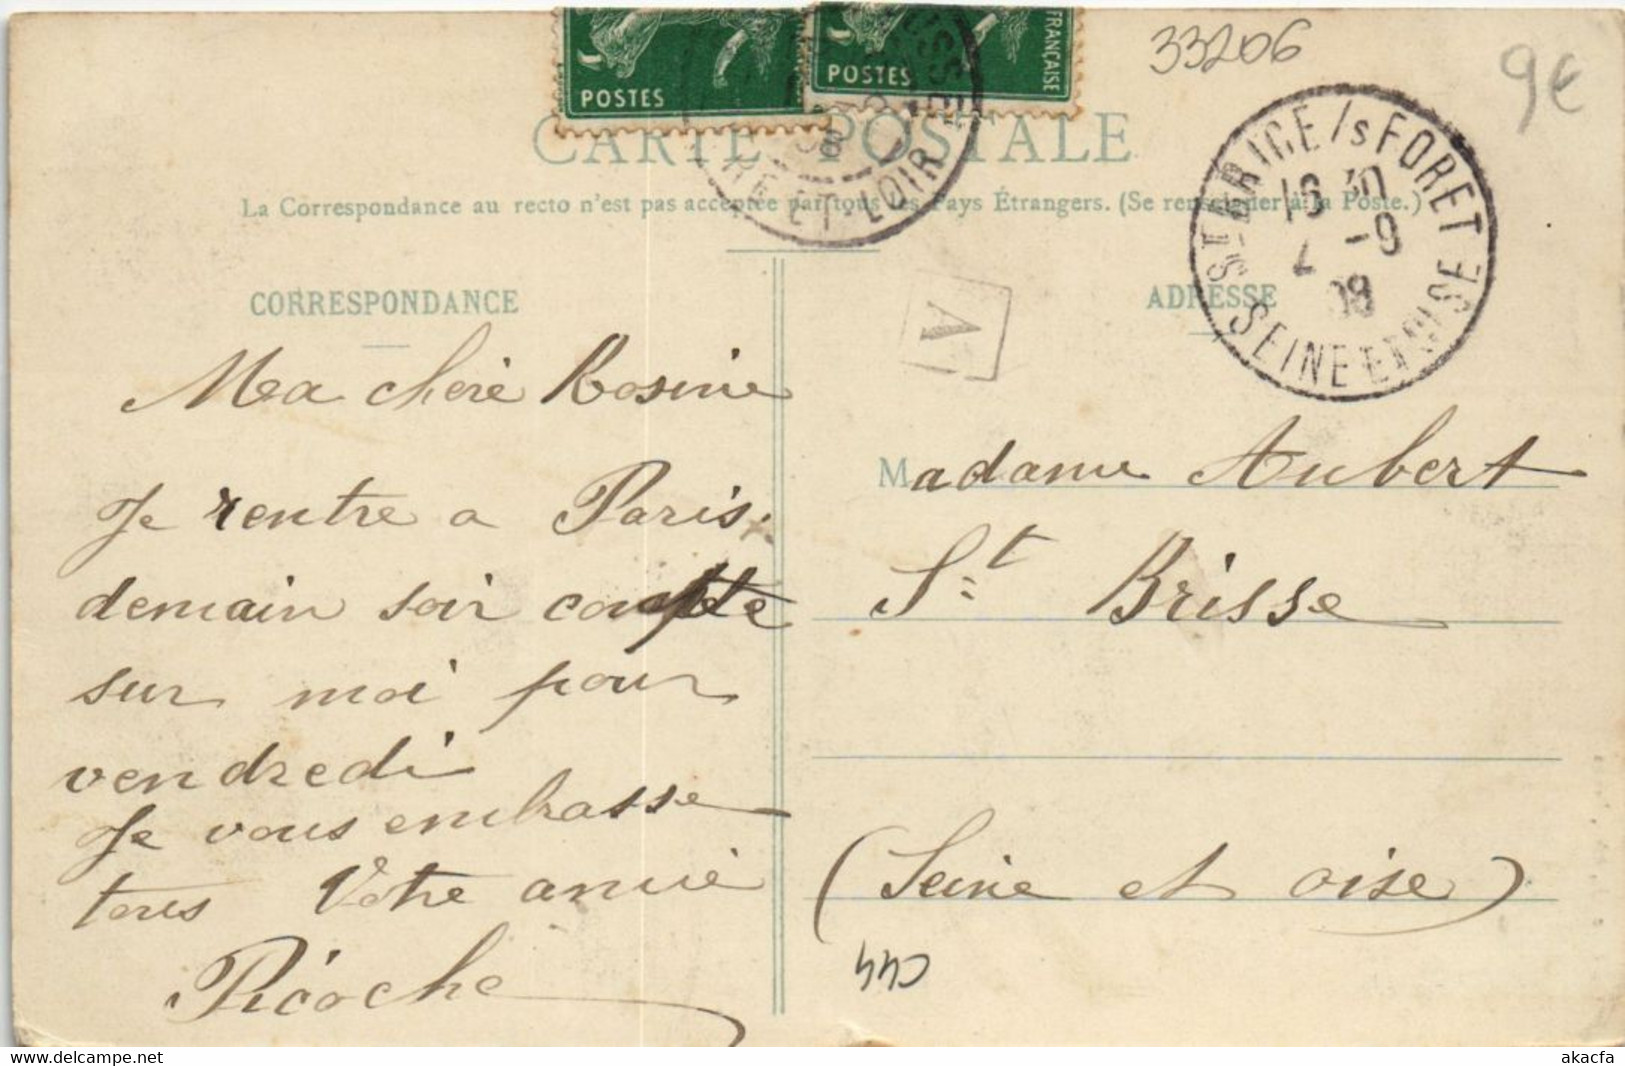 33206
9€
POSTES
POSTES
FRANÇAISE
CARTE POSTALE
ET-LOIR
La Correspondance au recto n'est pas acceptée par tous les Pays Étrangers. (Se renseigner à la Poste.)
ST-BRICE/s FORET
16 30
2 -9
08
SEINE ET OISE
CORRESPONDANCE
ADRESSE
A
Ma chère Rosine
Je rentre a Paris.
demain soir compte
sur moi pour
vendredi
Je vous embrasse
tous Votre amie
Picoche
Madame Aubert
St Brisse
(Seine et oise)
C44
delcampe.net
akacfa